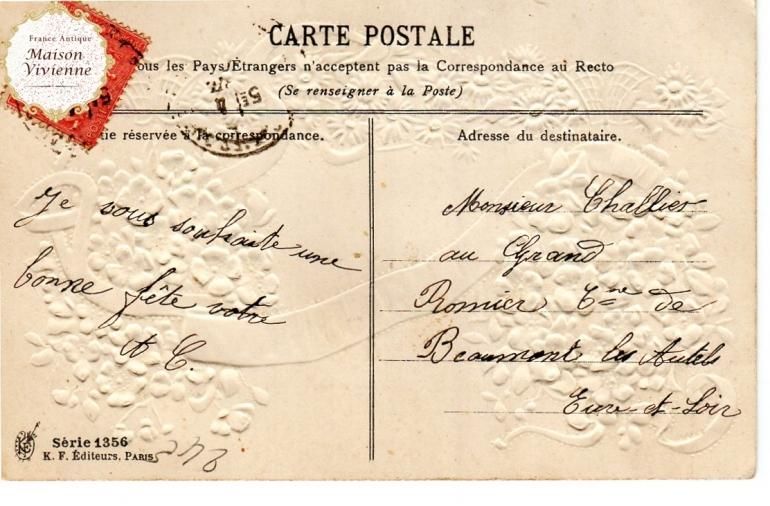 France Antique
Maison
Vivienne
CARTE POSTALE
ous les Pays Etrangers n'acceptent pas la Correspondance au Recto
(Se renseigner à la Poste)
tie réservée à la correspondance.
Adresse du destinataire.
Je vous souhaite une
bonne fête votre
A C.
Monsieur Challier
au Grand
Romier Cne de
Beaumont les Autels
Eure-et-Loir
Série 1356
K. F. Éditeurs, PARIS